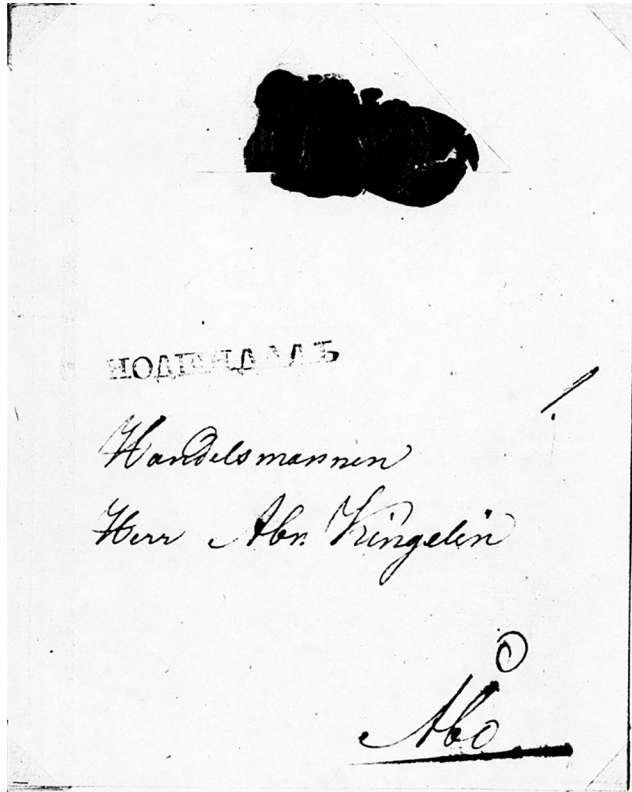 НОДЕНДАЛЪ
Handelsmannen
Herr Abr. Kingelin
Åbo